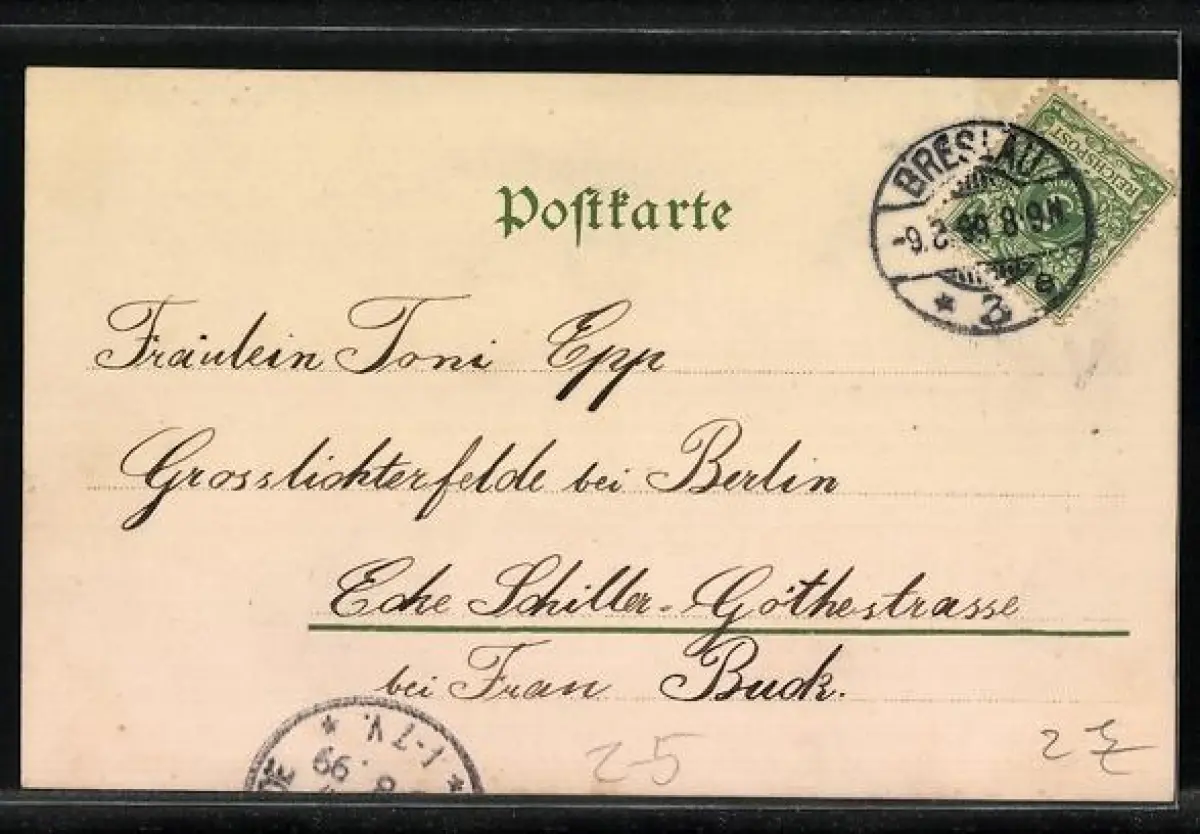 Postkarte
REICHSPOST
BRESLAU
-9.2.99.8-9N
* 2 e
Fräulein Toni Epp
Grosslichterfelde bei Berlin
Ecke Schiller-Göthestrasse
bei Frau Buck.
* 1-7V. *
8. 99
DE
25
2